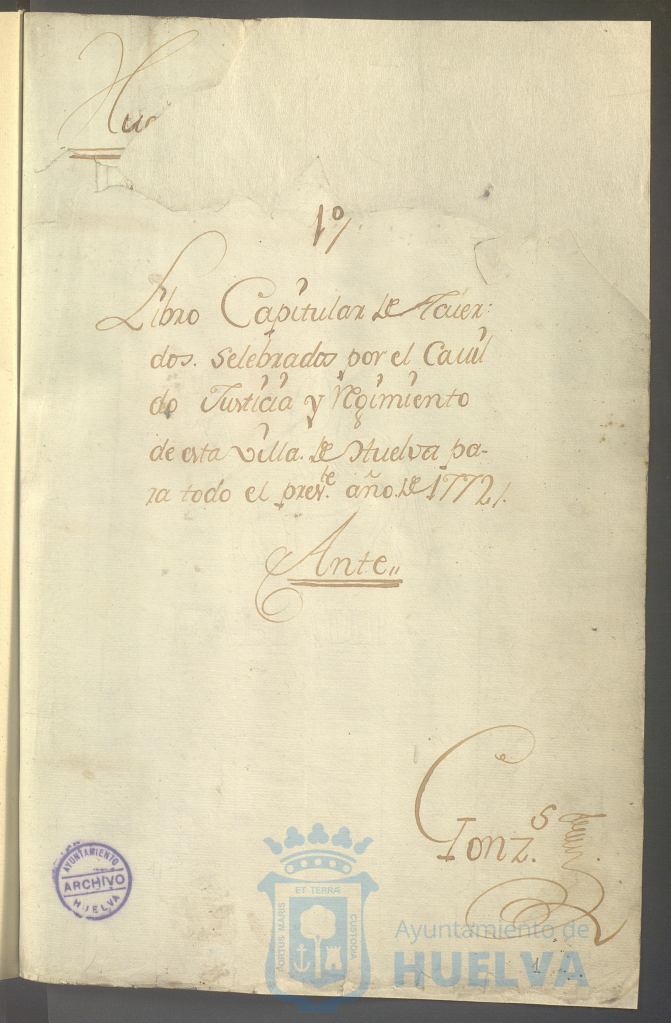 Hue
1º
Libro Capitular de Acuer-
dos. selebrados por el Cavil
do Justicia y Regimiento
de esta villa. de Huelva pa-
ra todo el preste. año. de 1772
Ante
Gonzs.
AYUNTAMIENTO
ARCHIVO
HUELVA
ET TERRÆ
PORTUS MARIS
CUSTODIA
Ayuntamiento de
HUELVA
1